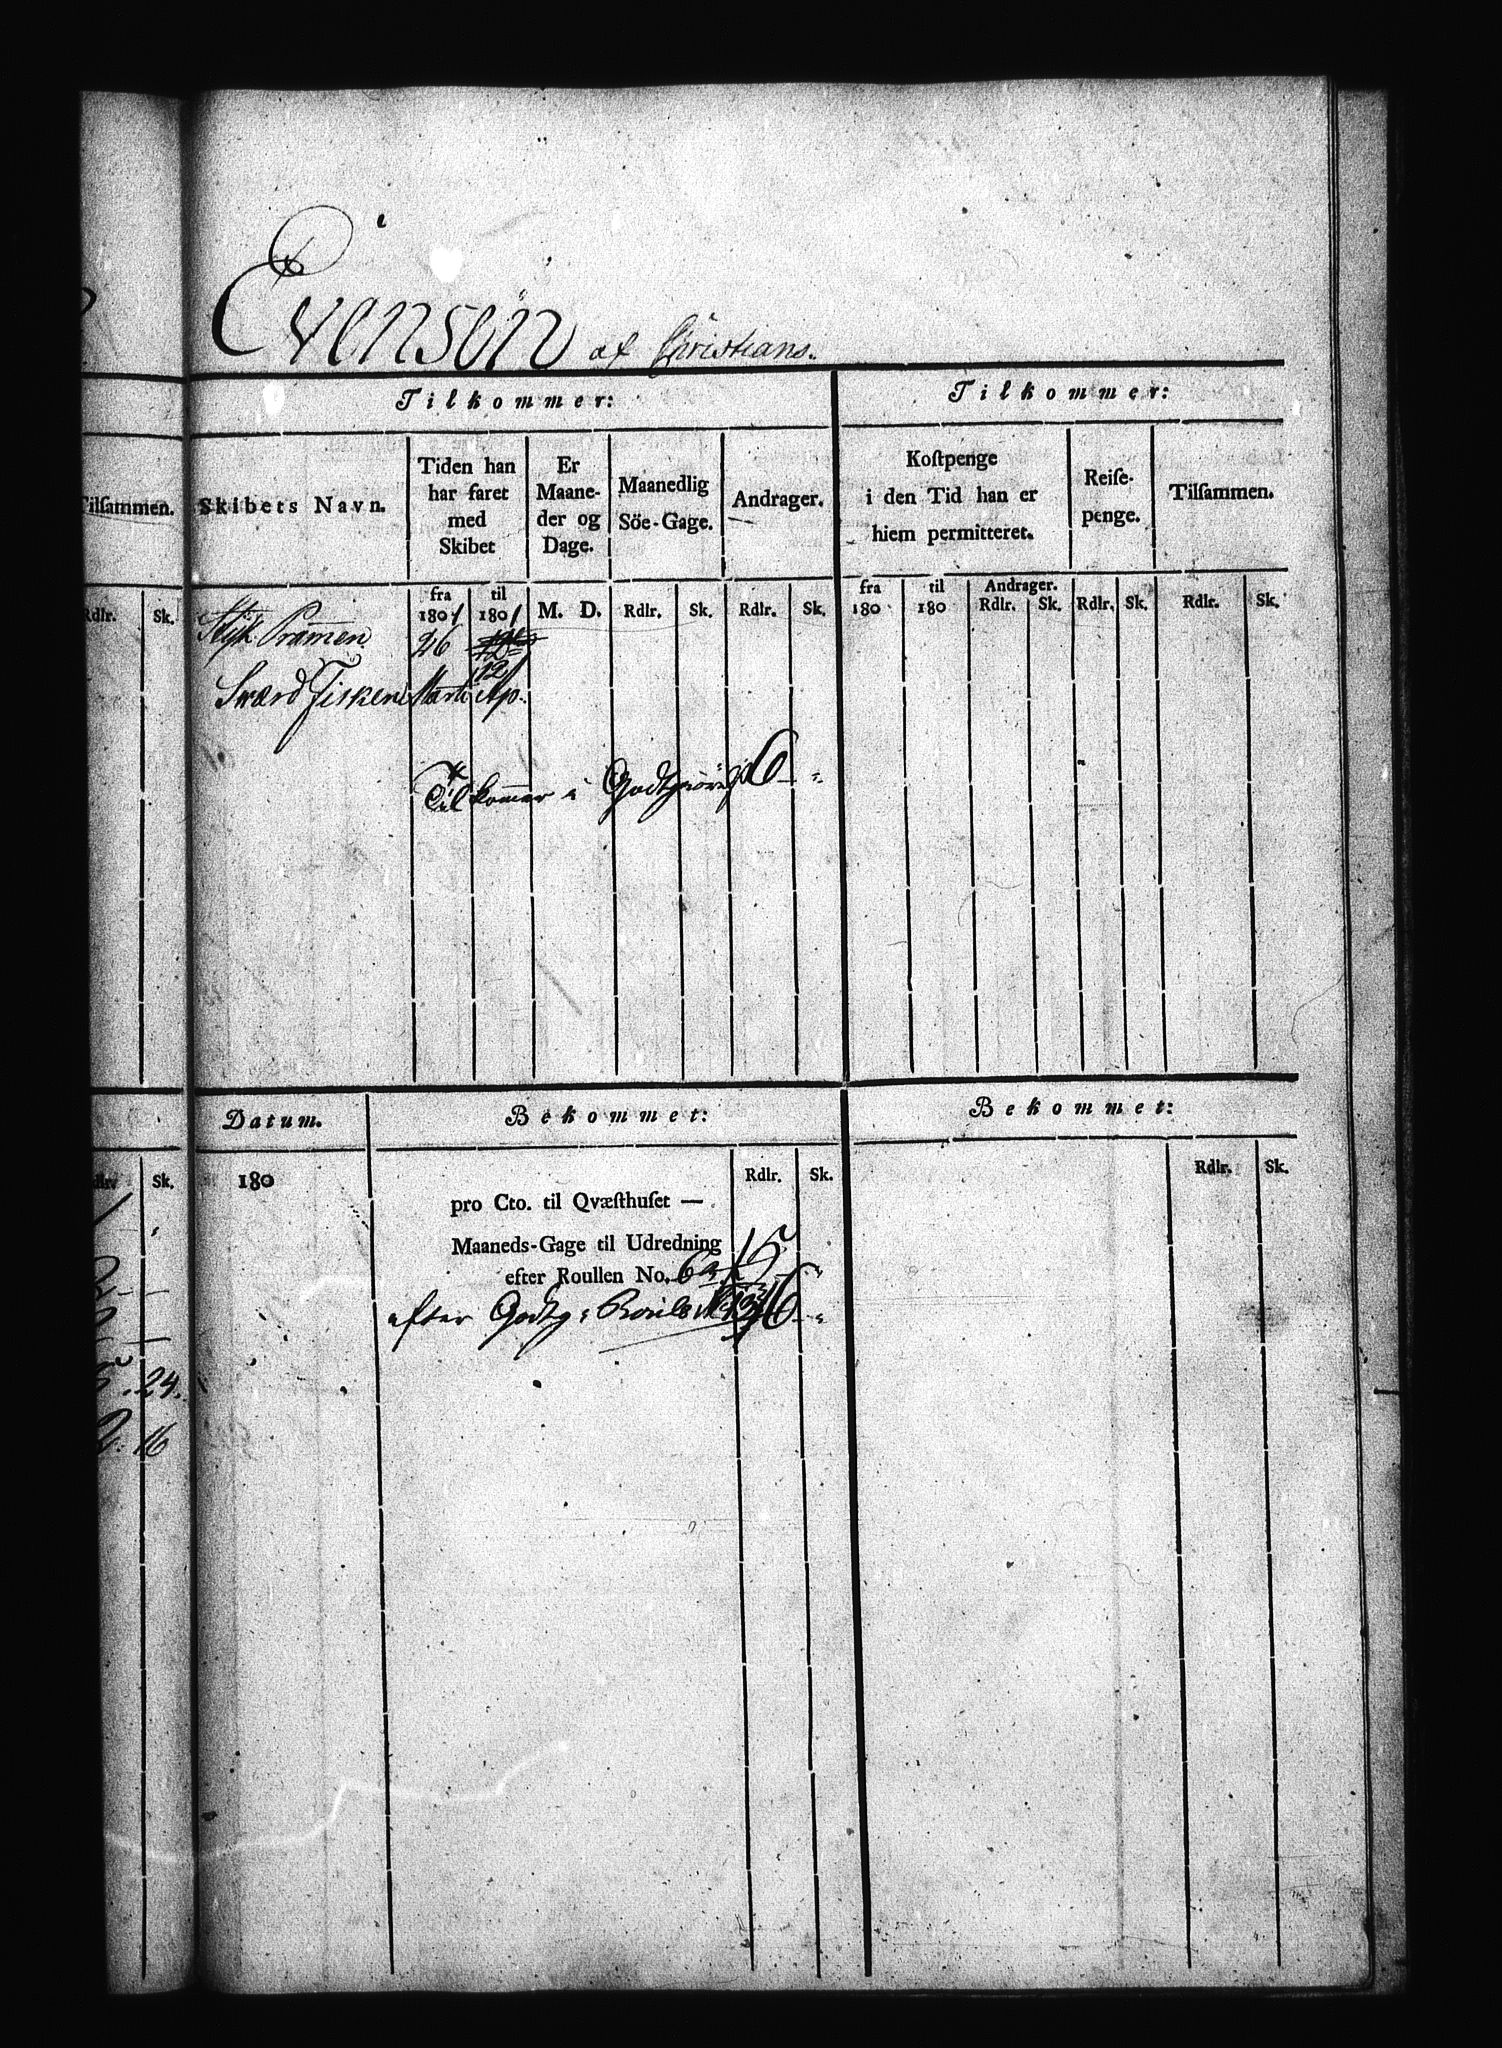 Evensen af Christians.
Tilkommer:
Tilkommer:
Tilsammen.
Skibets Navn.
Tiden han har faret med Skibet
Er Maaneder og Dage.
Maanedlig Söe-Gage.
Andrager.
Kostpenge i den Tid han er hiem permitteret.
Reisepenge.
Tilsammen.
Rdlr. Sk.
fra 1801 til 1801 M. D. Rdlr. Sk. Rdlr. Sk.
fra 180 til 180 Andrager. Rdlr. Sk. Rdlr. Sk. Rdlr. Sk.
Styk Pramen 26
Sværd Fisken Marti 12 Ap.
Tilkommer i Godtgiörelse 6 -
Datum.
Bekommet:
Bekommet:
Rdlr. Sk.
180
Rdlr. Sk.
Rdlr. Sk.
pro Cto. til Qvæsthuset —
Maaneds-Gage til Udredning
efter Roullen No. 15 -
efter Godtg: Roulle 6 -
24.
16